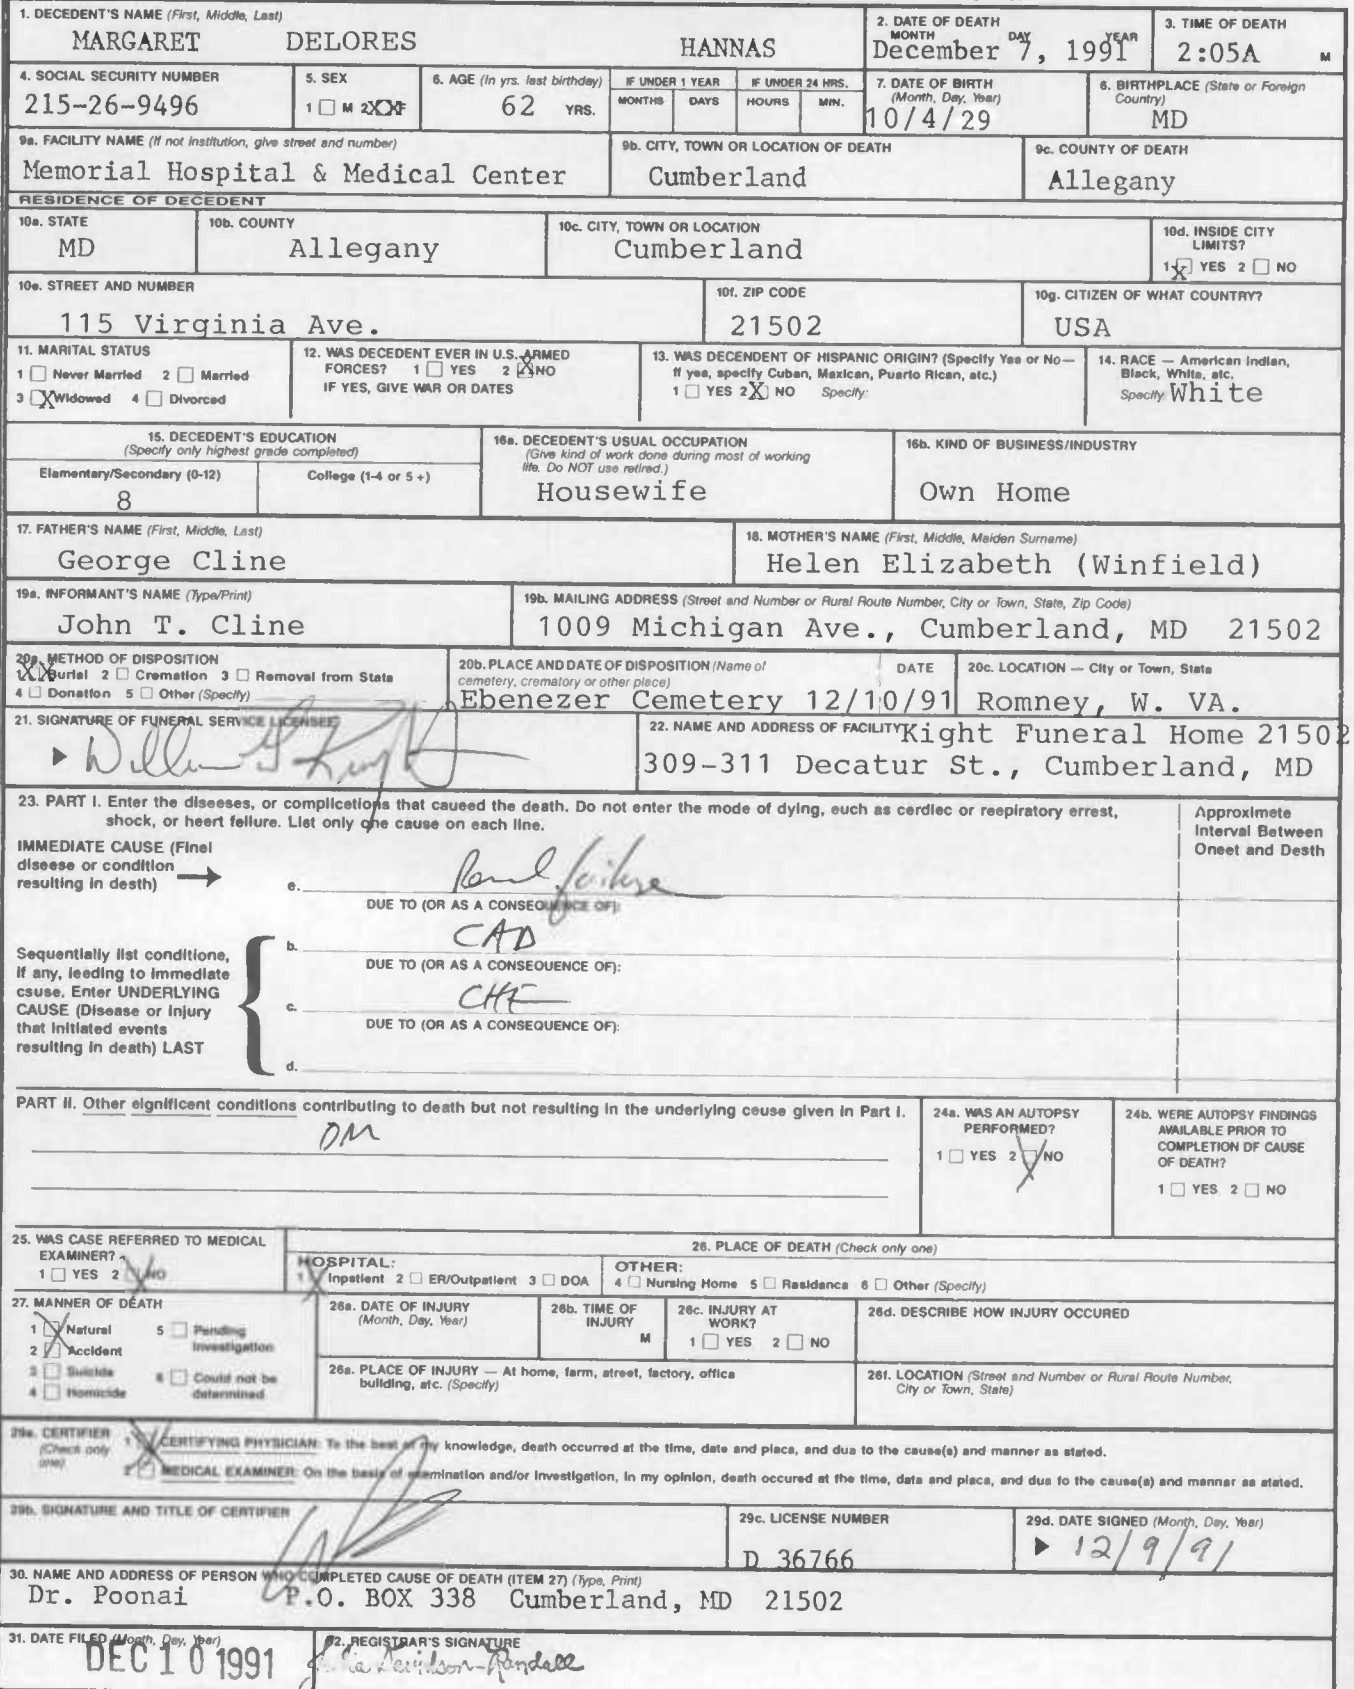 1. DECEDENT'S NAME (First, Middle, Last)
MARGARET DELORES HANNAS
2. DATE OF DEATH
MONTH DAY YEAR
December 7, 1991
3. TIME OF DEATH
2:05A M
4. SOCIAL SECURITY NUMBER
215-26-9496
5. SEX
1 ☐ M 2XXXF
6. AGE (In yrs. last birthday)
62 YRS.
IF UNDER 1 YEAR
MONTHS DAYS
IF UNDER 24 HRS.
HOURS MIN.
7. DATE OF BIRTH
(Month, Day, Year)
10/4/29
8. BIRTHPLACE (State or Foreign
Country)
MD
9a. FACILITY NAME (If not institution, give street and number)
Memorial Hospital & Medical Center
9b. CITY, TOWN OR LOCATION OF DEATH
Cumberland
9c. COUNTY OF DEATH
Allegany
RESIDENCE OF DECEDENT
10a. STATE
MD
10b. COUNTY
Allegany
10c. CITY, TOWN OR LOCATION
Cumberland
10d. INSIDE CITY
LIMITS?
1 X YES 2 ☐ NO
10e. STREET AND NUMBER
115 Virginia Ave.
10f. ZIP CODE
21502
10g. CITIZEN OF WHAT COUNTRY?
USA
11. MARITAL STATUS
1 ☐ Never Married 2 ☐ Married
3 X Widowed 4 ☐ Divorced
12. WAS DECEDENT EVER IN U.S. ARMED
FORCES? 1 ☐ YES 2 X NO
IF YES, GIVE WAR OR DATES
13. WAS DECENDENT OF HISPANIC ORIGIN? (Specify Yes or No—
If yes, specify Cuban, Mexican, Puerto Rican, etc.)
1 ☐ YES 2 X NO Specify:
14. RACE — American Indian,
Black, White, etc.
Specify: White
15. DECEDENT'S EDUCATION
(Specify only highest grade completed)
Elementary/Secondary (0-12) College (1-4 or 5 +)
8
16a. DECEDENT'S USUAL OCCUPATION
(Give kind of work done during most of working
life. Do NOT use retired.)
Housewife
16b. KIND OF BUSINESS/INDUSTRY
Own Home
17. FATHER'S NAME (First, Middle, Last)
George Cline
18. MOTHER'S NAME (First, Middle, Maiden Surname)
Helen Elizabeth (Winfield)
19a. INFORMANT'S NAME (Type/Print)
John T. Cline
19b. MAILING ADDRESS (Street and Number or Rural Route Number, City or Town, State, Zip Code)
1009 Michigan Ave., Cumberland, MD 21502
20a. METHOD OF DISPOSITION
1XX Burial 2 ☐ Cremation 3 ☐ Removal from State
4 ☐ Donation 5 ☐ Other (Specify)
20b. PLACE AND DATE OF DISPOSITION (Name of DATE
cemetery, crematory or other place)
Ebenezer Cemetery 12/10/91
20c. LOCATION — City or Town, State
Romney, W. VA.
21. SIGNATURE OF FUNERAL SERVICE LICENSEE
22. NAME AND ADDRESS OF FACILITY Kight Funeral Home 21502
309-311 Decatur St., Cumberland, MD
23. PART I. Enter the diseases, or complications that caused the death. Do not enter the mode of dying, such as cardiac or respiratory arrest,
shock, or heart failure. List only one cause on each line.
Approximate
Interval Between
Onset and Death
IMMEDIATE CAUSE (Final
disease or condition
resulting in death) →
a. Renal failure
DUE TO (OR AS A CONSEQUENCE OF):
Sequentially list conditions,
if any, leading to immediate
cause. Enter UNDERLYING
CAUSE (Disease or injury
that initiated events
resulting in death) LAST
b. CAD
DUE TO (OR AS A CONSEQUENCE OF):
c. CHF
DUE TO (OR AS A CONSEQUENCE OF):
d.
PART II. Other significant conditions contributing to death but not resulting in the underlying cause given in Part I.
DM
24a. WAS AN AUTOPSY
PERFORMED?
1 ☐ YES 2 X NO
24b. WERE AUTOPSY FINDINGS
AVAILABLE PRIOR TO
COMPLETION OF CAUSE
OF DEATH?
1 ☐ YES 2 ☐ NO
25. WAS CASE REFERRED TO MEDICAL
EXAMINER?
1 ☐ YES 2 X NO
26. PLACE OF DEATH (Check only one)
HOSPITAL:
1 X Inpatient 2 ☐ ER/Outpatient 3 ☐ DOA
OTHER:
4 ☐ Nursing Home 5 ☐ Residence 6 ☐ Other (Specify)
27. MANNER OF DEATH
1 X Natural 5 ☐ Pending
Investigation
2 ☐ Accident
3 ☐ Suicide 6 ☐ Could not be
4 ☐ Homicide determined
28a. DATE OF INJURY
(Month, Day, Year)
28b. TIME OF
INJURY
M
28c. INJURY AT
WORK?
1 ☐ YES 2 ☐ NO
28d. DESCRIBE HOW INJURY OCCURED
28e. PLACE OF INJURY — At home, farm, street, factory, office
building, etc. (Specify)
28f. LOCATION (Street and Number or Rural Route Number,
City or Town, State)
29a. CERTIFIER
(Check only
one)
1 X CERTIFYING PHYSICIAN: To the best of my knowledge, death occurred at the time, date and place, and due to the cause(s) and manner as stated.
2 ☐ MEDICAL EXAMINER: On the basis of examination and/or investigation, in my opinion, death occured at the time, date and place, and due to the cause(s) and manner as stated.
29b. SIGNATURE AND TITLE OF CERTIFIER
29c. LICENSE NUMBER
D 36766
29d. DATE SIGNED (Month, Day, Year)
12/9/91
30. NAME AND ADDRESS OF PERSON WHO COMPLETED CAUSE OF DEATH (ITEM 27) (Type, Print)
Dr. Poonai P.O. BOX 338 Cumberland, MD 21502
31. DATE FILED (Month, Day, Year)
DEC 10 1991
32. REGISTRAR'S SIGNATURE
Davidson-Randall